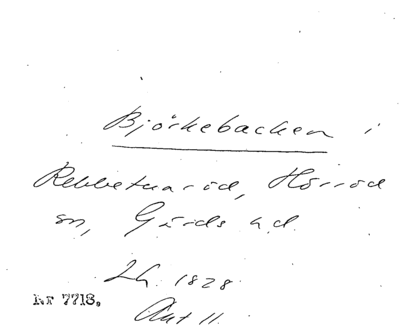 Björkebacken i
Rebbetuaröd, Hörröd
sn, Gärds hd.
Lh. 1828
Akt 11.
Nr 7718.